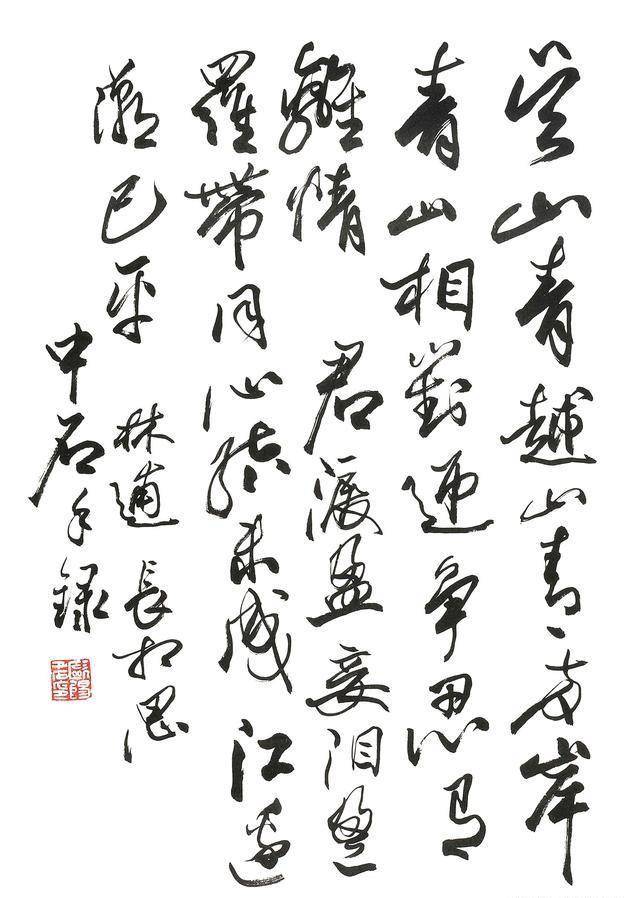 吴山青越山青两岸
青山相對迎争忍有
離情 君淚盈妾泪盈
羅帶同心結未成 江邊
潮已平 林逋 長相思
中石手錄